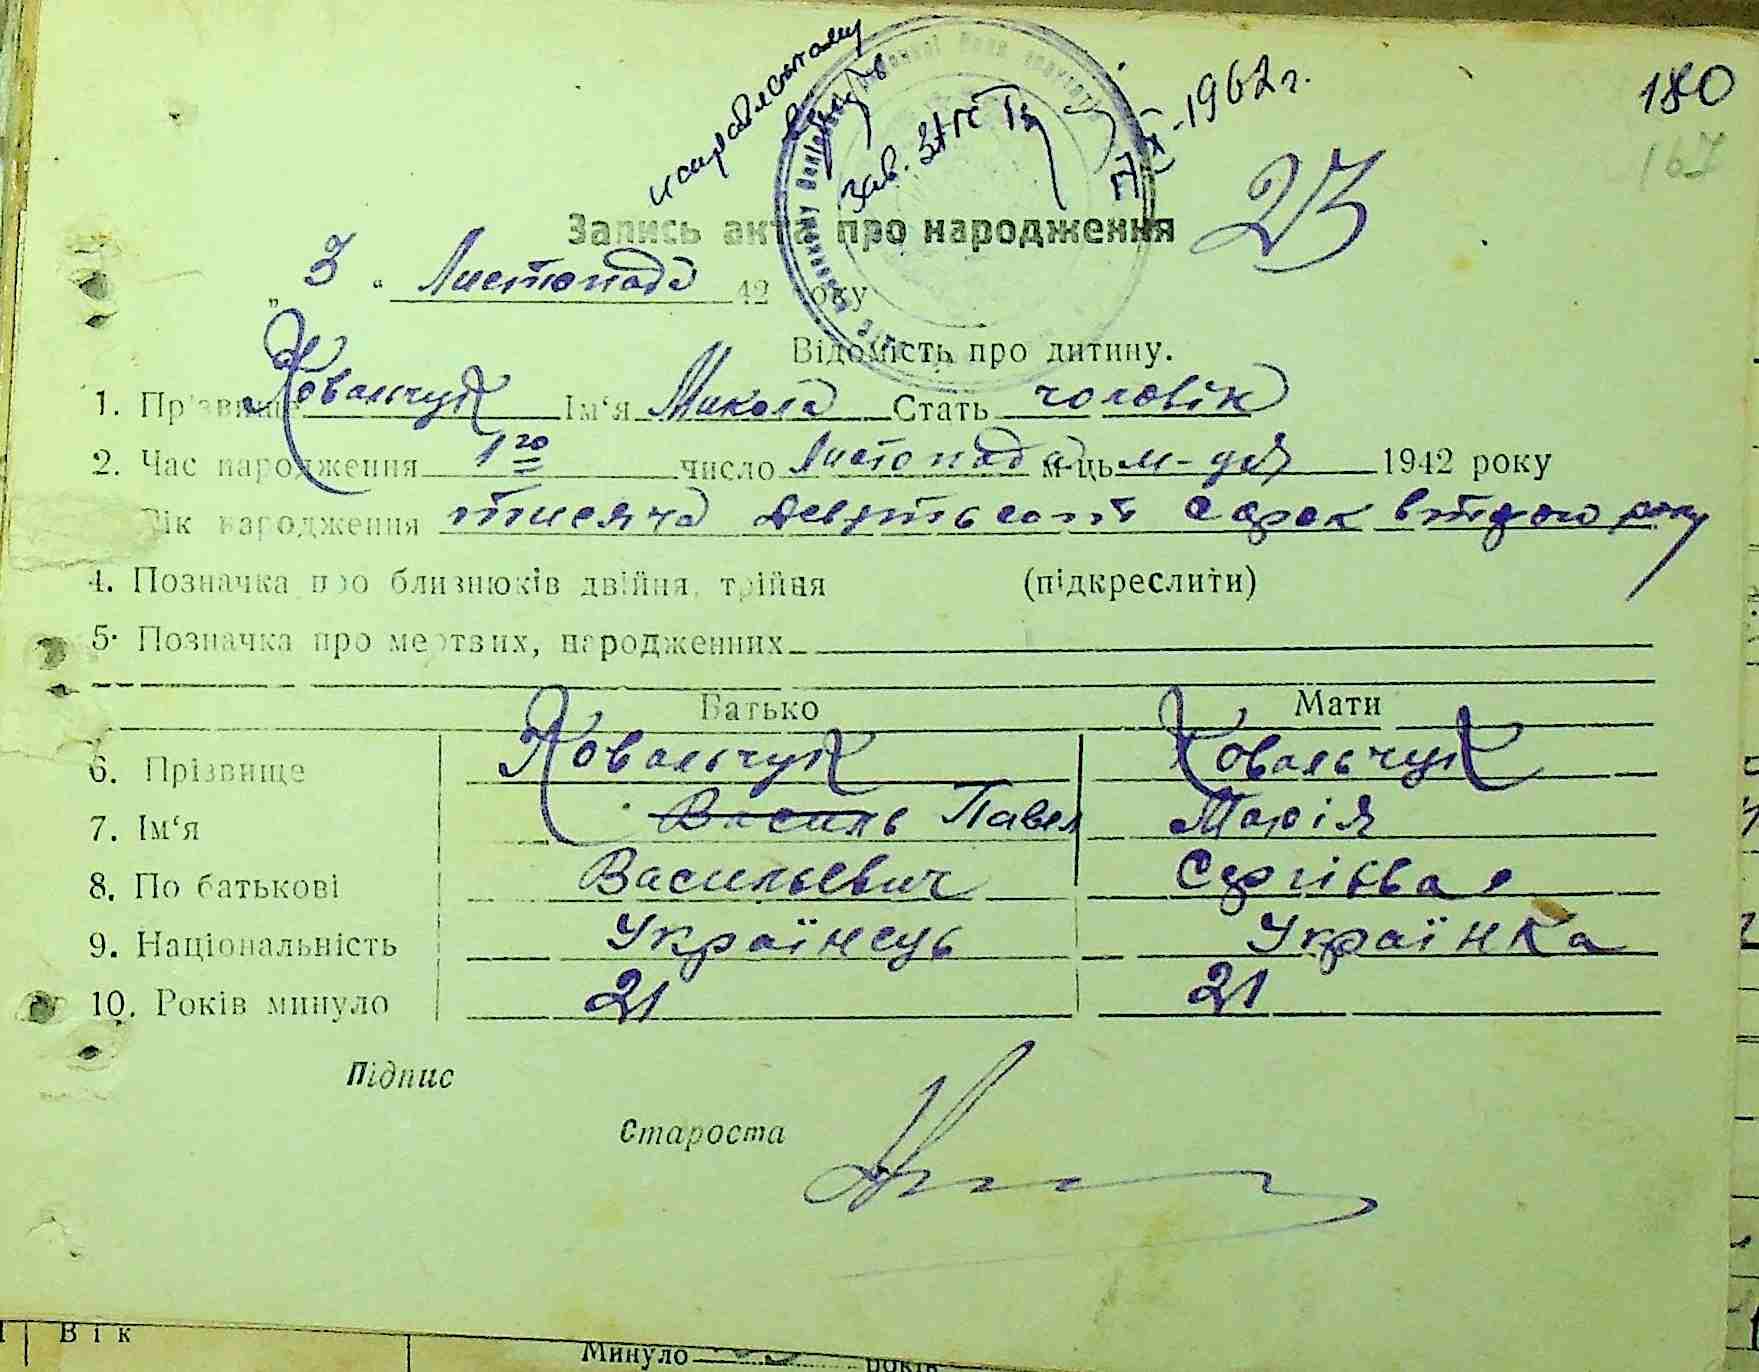 исправленому
верить
зав. ЗАГС
IX-1962 г.
180
167
23
Запись акта про народження
„ 3 “ Листопада 42 року
Відомість про дитину.
1. Пр'звище Ковальчук Ім‘я Микола Стать чоловік
2. Час народження 1 20 число Листопада м-ць м-ця 1942 року
Рік народження тисяча девятьсот сорок втрого року
4. Позначка про близнюків двійня, трійня (підкреслити)
5. Позначка про мертвих, народженних
Батько Мати
6. Прізвище Ковальчук Ковальчук
7. Ім‘я Василь Павел Марія
8. По батькові Васильевич Сергієвна
9. Національність Українець Українка
10. Років минуло 21 21
Підпис
Староста
Вік
Минуло років